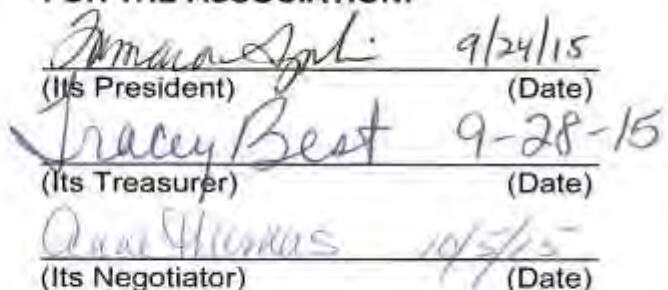 FOR THE ASSOCIATION:
9/24/15
(Its President) (Date)
Tracey Best 9-28-15
(Its Treasurer) (Date)
10/5/15
(Its Negotiator) (Date)